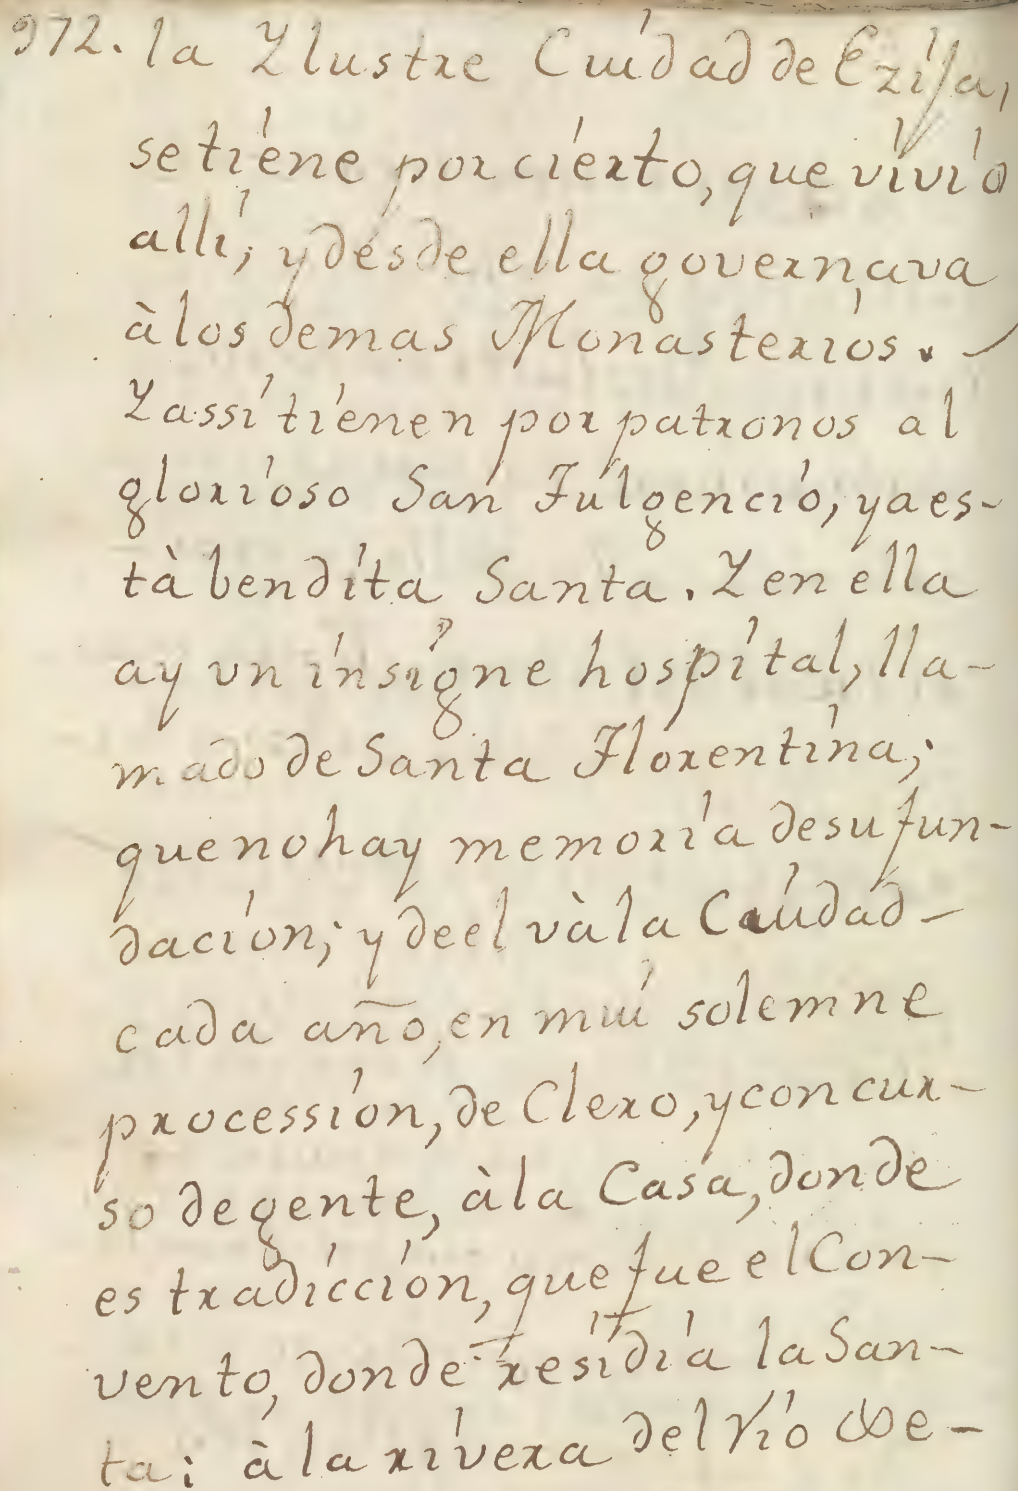 972. la Ylustre Cuidad de Ezija,
se tiene por cierto, que vivio
alli; y desde ella governava
à los demas Monasterios.
Y assi tienen por patronos al
glorioso San Fulgencio, y a es-
tà bendita Santa. Y en ella
ay vn insigne hospital, lla-
mado de Santa Florentina;
que no hay memoria de su fun-
dacion; y de el và la Ciudad
cada año, en mui solemne
procession, de Clero, y concur-
so de gente, à la Casa, donde
es tradiccion, que fue el Con-
vento, donde residia la San-
ta: à la rivera del Rio Xe-